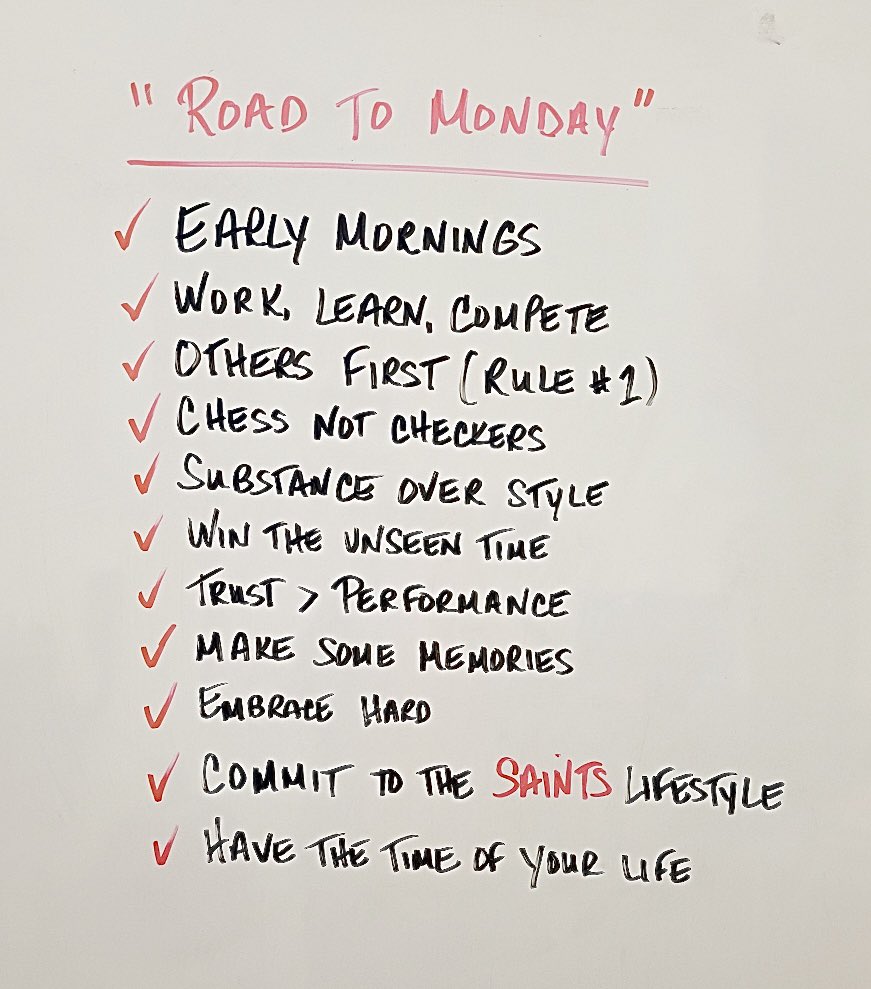 "ROAD TO MONDAY"
✓ EARLY MORNINGS
✓ WORK, LEARN, COMPETE
✓ OTHERS FIRST (RULE #1)
✓ CHESS NOT CHECKERS
✓ SUBSTANCE OVER STYLE
✓ WIN THE UNSEEN TIME
✓ TRUST > PERFORMANCE
✓ MAKE SOME MEMORIES
✓ EMBRACE HARD
✓ COMMIT TO THE SAINTS LIFESTYLE
✓ HAVE THE TIME OF YOUR LIFE